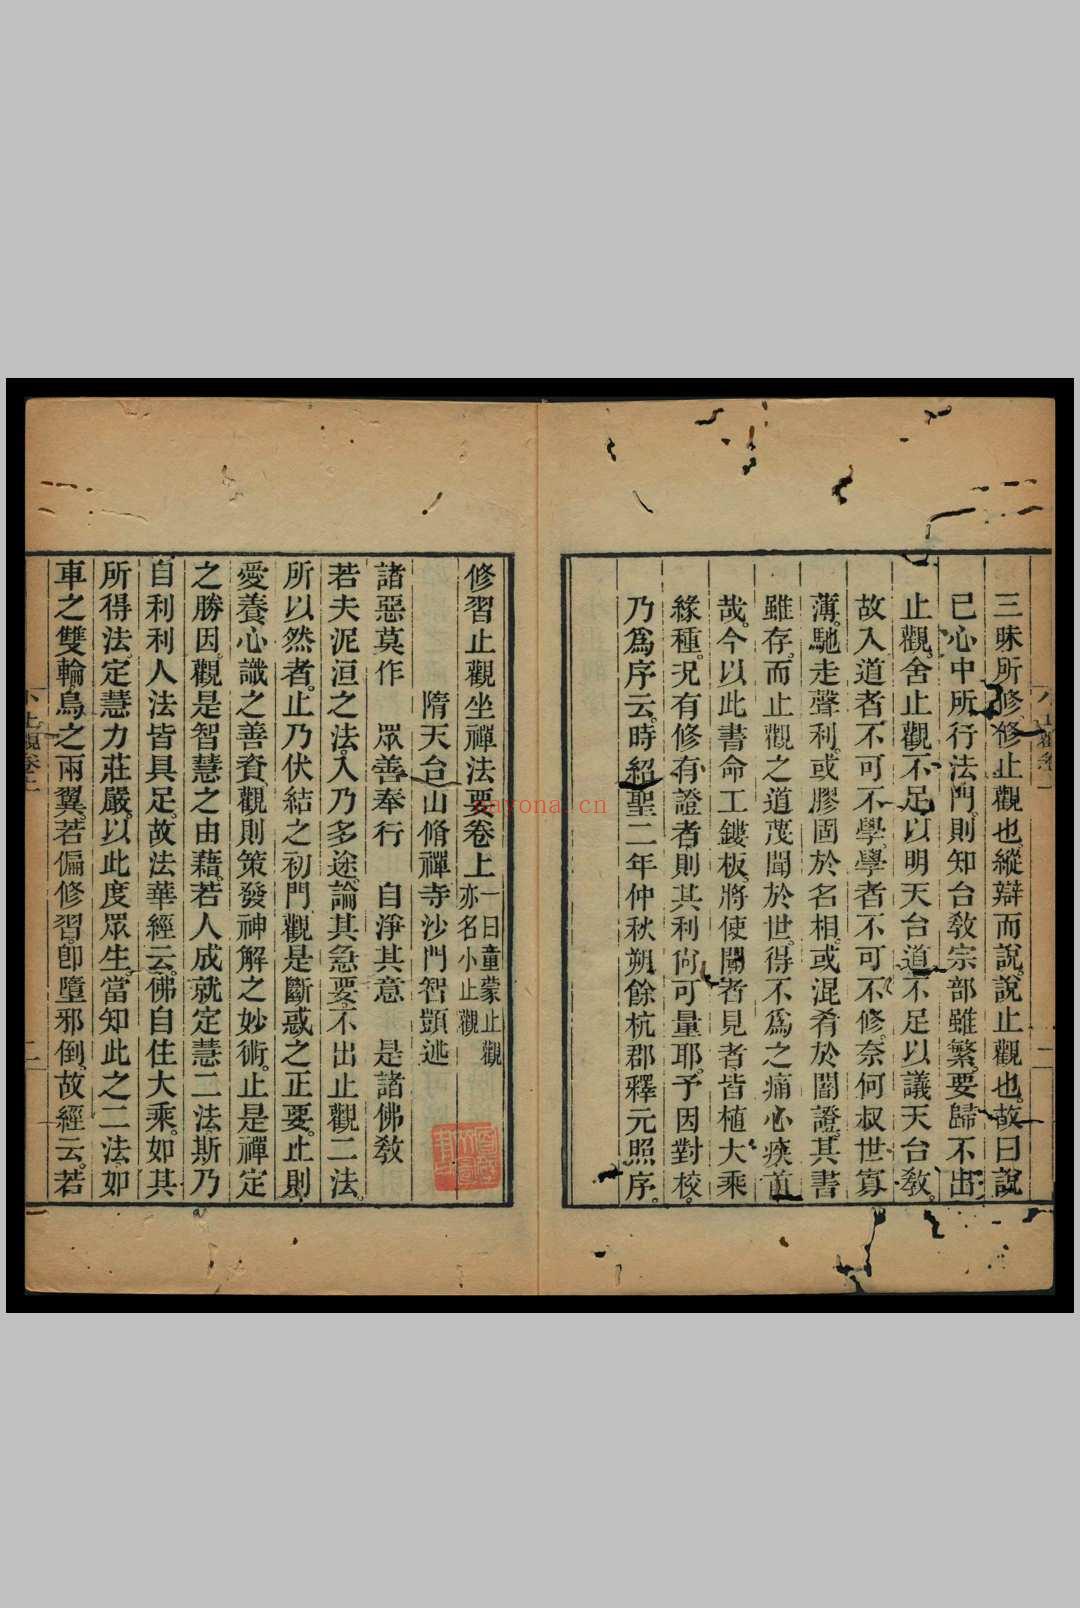 三昧所修修止觀也縱辯而說說止觀也故曰說
已心中所行法門則知台教宗部雖繁要歸不出
止觀舍止觀不足以明天台道不足以議天台教
故入道者不可不學學者不可不修奈何叔世寡
薄馳走聲利或膠固於名相或混肴於闇證其書
雖存而止觀之道蔑聞於世得不爲之痛心疾首
哉今以此書命工鏤板將使聞者見者皆植大乘
緣種況有修有證者則其利尙可量耶予因對校
乃爲序云時紹聖二年仲秋朔餘杭郡釋元照序
修習止觀坐禪法要卷上
一曰童蒙止觀
亦名小止觀
隋天台山脩禪寺沙門智顗述
諸惡莫作 眾善奉行 自淨其意 是諸佛敎
若夫泥洹之法入乃多途論其急要不出止觀二法
所以然者止乃伏結之初門觀是斷惑之正要止則
愛養心識之善資觀則策發神解之妙術止是禪定
之勝因觀是智慧之由藉若人成就定慧二法斯乃
自利利人法皆具足故法華經云佛自住大乘如其
所得法定慧力莊嚴以此度眾生當知此之二法如
車之雙輪鳥之兩翼若偏修習卽墮邪倒故經云若
nayona.cn